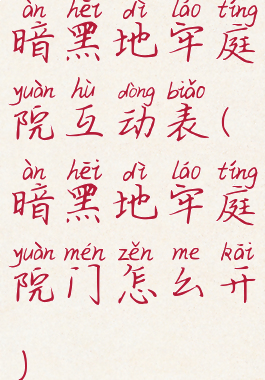 àn hēi dì láo tíng
暗黑地牢庭
yuàn hù dòng biǎo
院互动表(
àn hēi dì láo tíng
暗黑地牢庭
yuàn mén zěn me kāi
院门怎么开
)